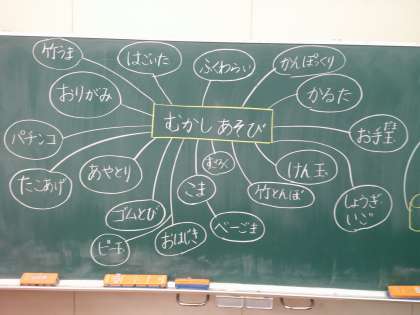 竹うま
はごいた
ふくわらい
かんぽっくり
おりがみ
かるた
むかしあそび
パチンコ
お手玉
たこあげ
あやとり
すごろく
けん玉
こま
竹とんぼ
しょうぎ
いご
ゴムとび
ビー玉
おはじき
べーごま